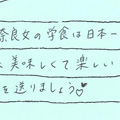 奈良女の学食は日本一
美味しくて楽しい
を送りましょう♡